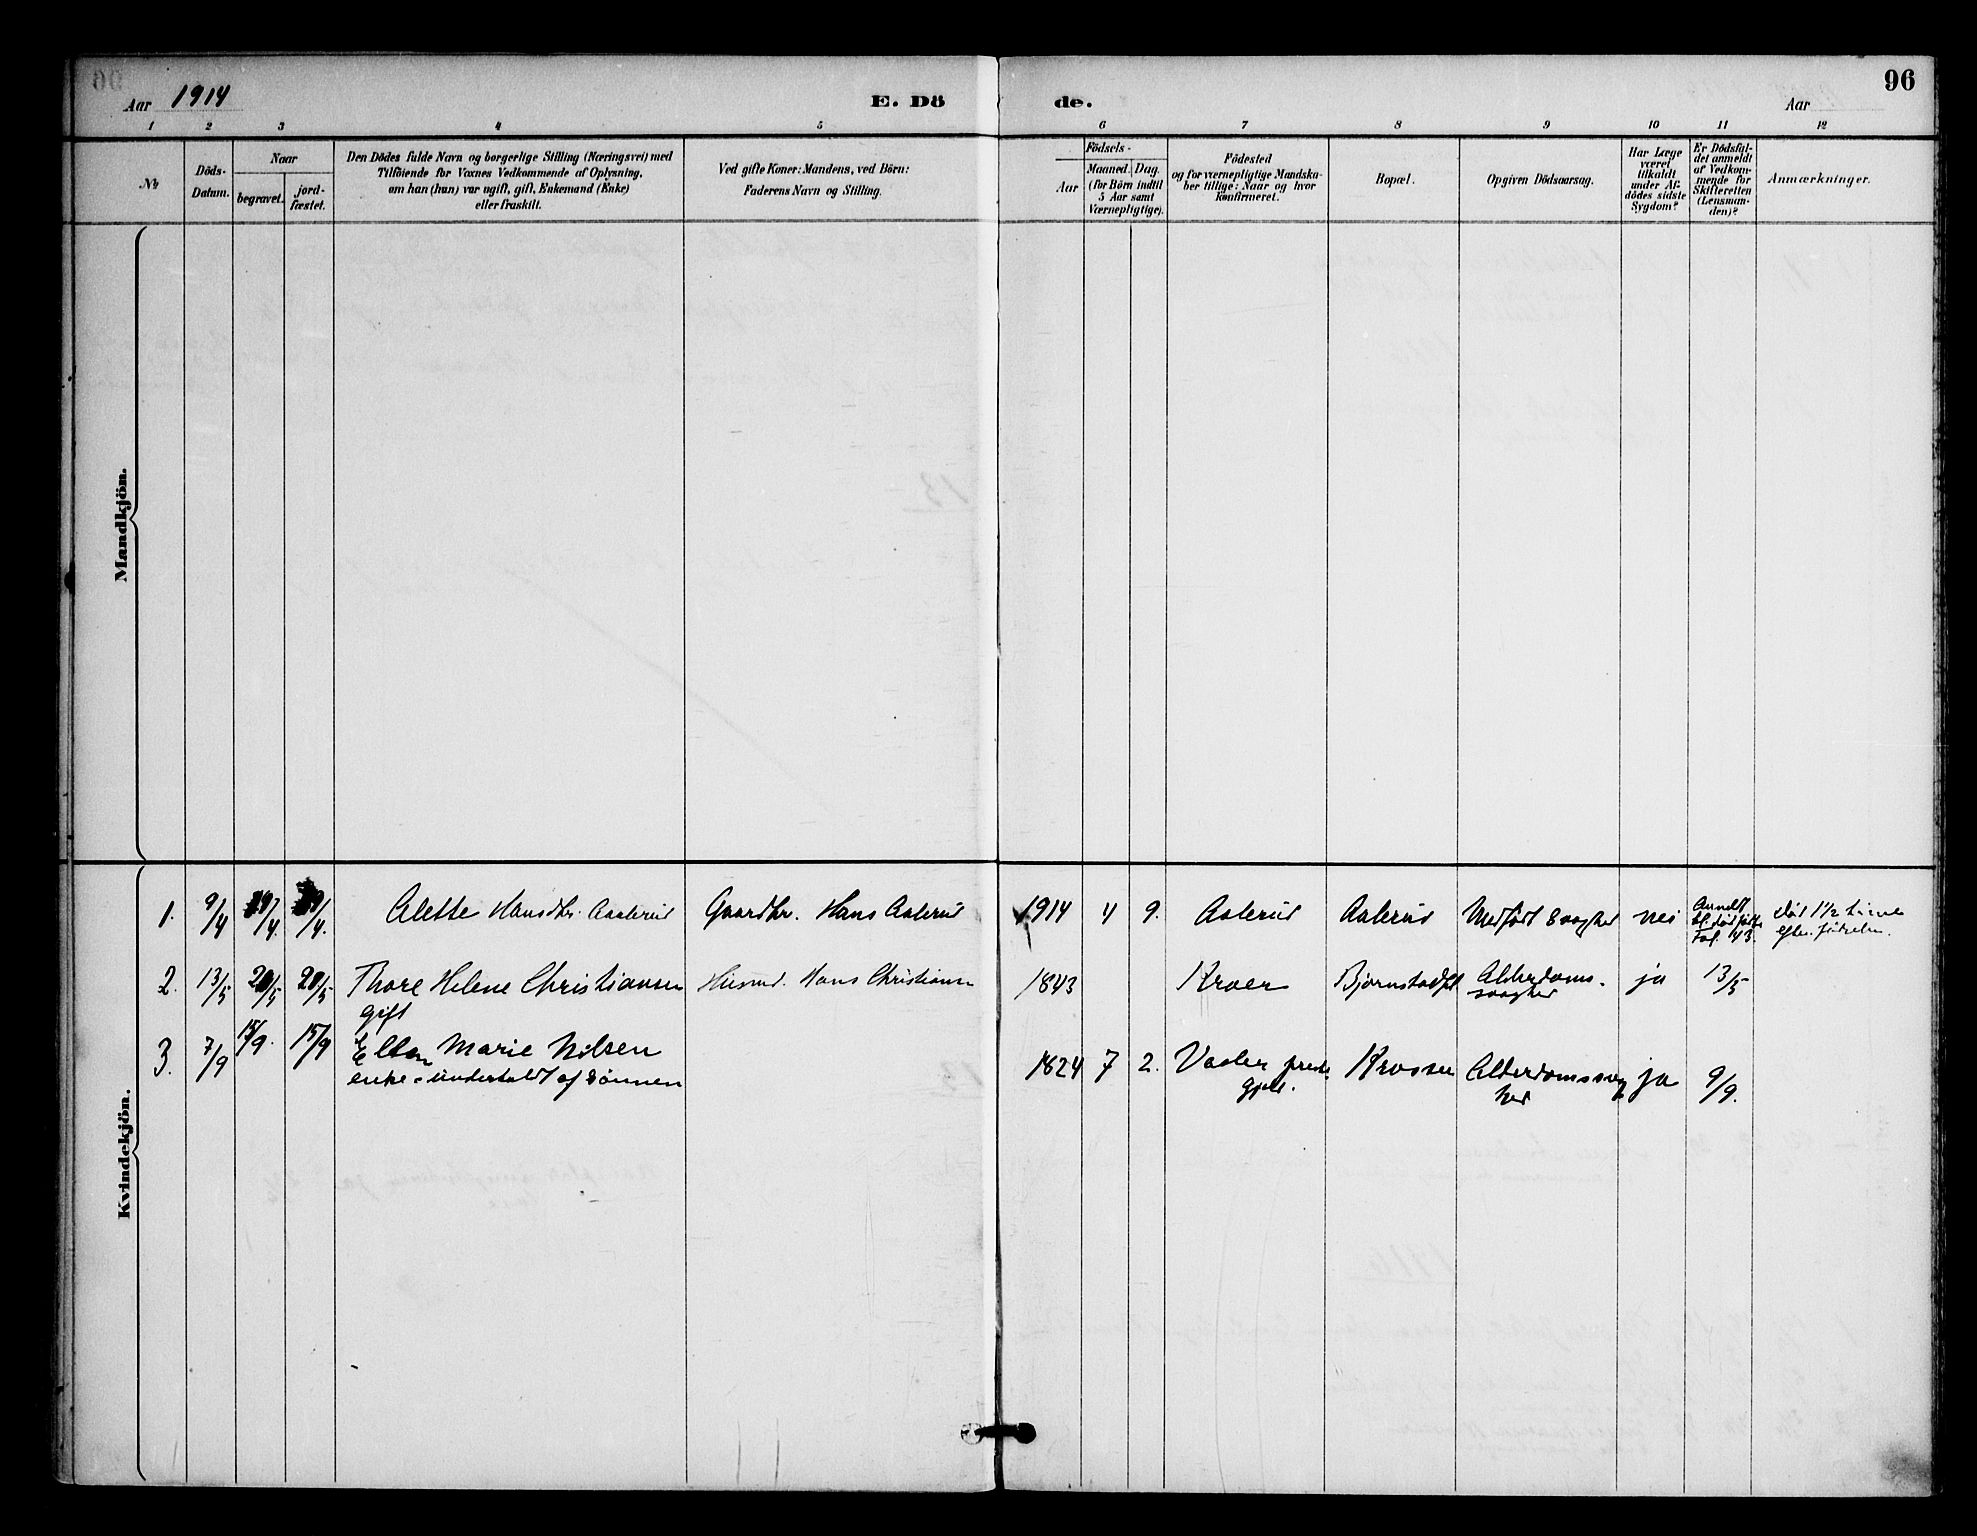 96
Aar 1914
E. Dö
de.
Aar
1 2 3 4 5 6 7 8 9 10 11 12
Nr
Döds-
Datum.
Naar
begravet.
jord-
fæstet.
Den Dödes fulde Navn og borgerlige Stilling (Næringsvei) med
Tilföiende for Voxnes Vedkommende af Oplysning,
om han (hun) var ugift, gift, Enkemand (Enke)
eller fraskilt.
Ved gifte Koner: Mandens, ved Börn:
Faderens Navn og Stilling.
Födsels-
Aar
Maaned. Dag.
(for Börn indtil
5 Aar samt
Værnepligtige).
Födested
og for værnepligtige Mandska-
ber tillige: Naar og hvor
konfirmeret.
Bopæl.
Opgiven Dödsaarsag.
Har Læge
været
tilkaldt
under Af-
dödes sidste
Sygdom?
Er Dödsfal-
det anmeldt
af Vedkom-
mende for
Skifteretten
(Lensman-
den)?
Anmærkninger.
Mandkjön.
Kvindekjön.
1. 9/4 Alette Hansdtr. Aaslerud Gaardbr. Hans Aslerud 1914 4 9. Aslerud Aslerud Medfört svaghed nei
død 1½ time
efter fødselen.
2. 13/5 20/5 20/5 Thore Helene Christiansen Husmd. Hans Christiansen 1843 Kroer Bjørnstadfet Alderdoms- ja 13/5
gift
svaghed
3. 7/9 15/9. 15/9 Ellen Marie Nilsen 1824 7 2. Vaaler preste Krossen Alderdomssvag ja 9/9.
enke - underholdt af sønnen
gjeld.
hed